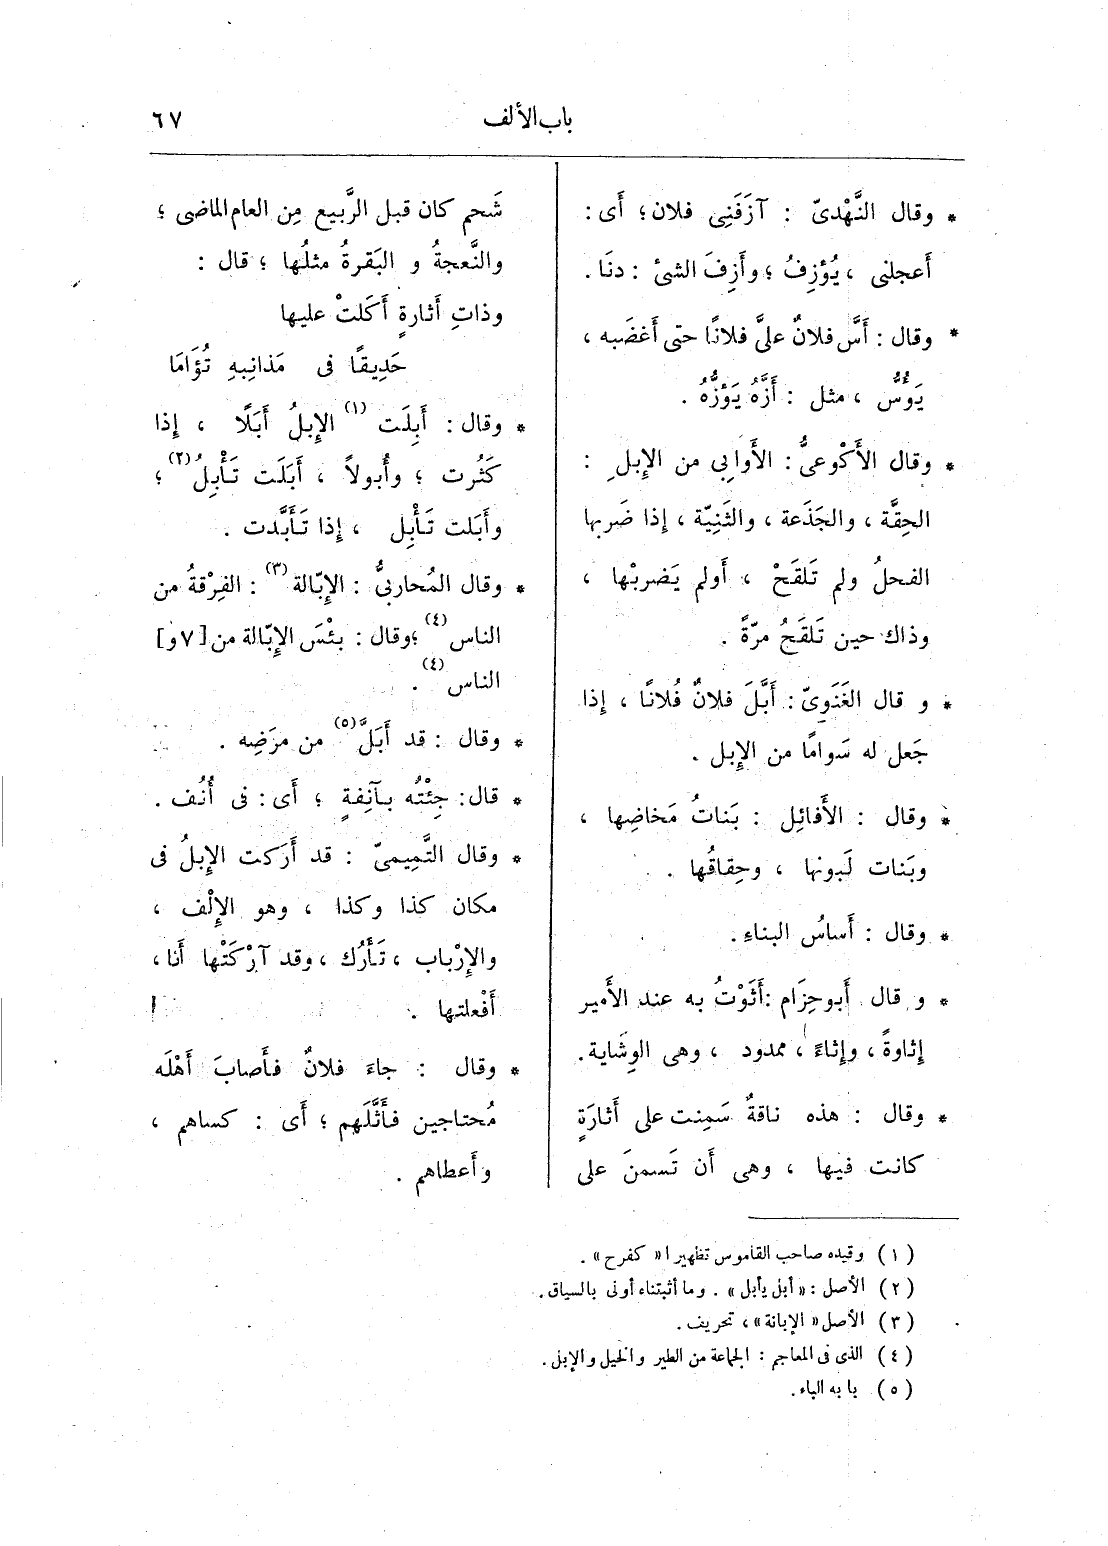 باب الألف
٦٧
* وقال النَّهْدىّ : آزَفَنِى فلان؛ أَى :
أَعجلنى ، يُؤْزِفُ ؛ وأَزِفَ الشئ : دنَا .
* وقال : أَسَّ فلانٌ علىَّ فلانًا حتى أَغضَبه ،
يَؤُسُّ ، مثل : أَزَّهُ يَؤُزُّهُ .
* وقال الأَكْوعىُّ : الأَوابِى من الإِبلِ :
الحِقَّة ، والجَذَعة ، والثَنِيّة ، إذا ضَربها
الفحلُ ولم تَلقَحْ ، أَولم يَضربْها ،
وذاك حين تَلقَحُ مرّةً .
* و قال الغَنَوِىّ : أَبَّلَ فلانٌ فُلانًا ، إذا
جَعل له سَوامًا من الإِبل .
* وقال : الأَفائِل : بَناتُ مَخاضِها ،
وبَنات لَبونها ، وحِقاقُها .
* وقال : أَساسُ البناءِ .
* و قال أَبوحِزَام : أَثَوْتُ به عند الأَمير
إثاوةً ، وإثاءً ، ممدود ، وهى الوِشَاية .
* وقال : هذه ناقةٌ سَمِنت على أَثارَةٍ
كانت فيها ، وهى أَن تَسمنَ على
شَحم كان قبل الرَّبيع مِن العام الماضى ؛
والنَّعجةُ و البَقرةُ مثلُها ؛ قال :
وذاتِ أَثارةٍ أَكَلتْ عليها
حَدِيقًا فى مَذانِبهِ تُؤَامَا
* وقال : أَبِلَت (١) الإِبلُ أَبَلًا ، إذا
كَثُرت ؛ وأُبولاً ، أَبَلَت تَأْبِلُ (٢) ؛
وأَبَلت تَأْبِل ، إذا تَأَبَّدت .
* وقال المُحاربىُّ : الإِبّالة (٣) : الفِرْقةُ من
الناس (٤) ؛ وقال : بئْسَ الإِبّالة من [٧و]
الناس (٤) .
* وقال : قد أَبَلَّ (٥) من مرَضِه .
* قال : جِئْتُه بآنِفةٍ ؛ أَى : فى أُنُف .
* وقال التَّمِيمىّ : قد أَرَكت الإِبلُ فى
مكان كذا وكذا ، وهو الإِلْف ،
والإِرْباب ، تَأْرُك ، وقد آرَكَتْها أَنا ،
أَفْعلتها .
* وقال : جاءَ فلانٌ فأَصابَ أَهْلَه
مُحتاجين فأَثَّلَهم ؛ أَى : كساهم ،
وأَعطاهم .
(١) وقيده صاحب القاموس تنظيرا « كفرح » .
(٢) الأصل : « أبل يأبل » . وما أثبتناه أولى بالسياق .
(٣) الأصل « الإبانة » ، تحريف .
(٤) الذى فى المعاجم : الجماعة من الطير والخيل والإبل .
(٥) بابه الباء .